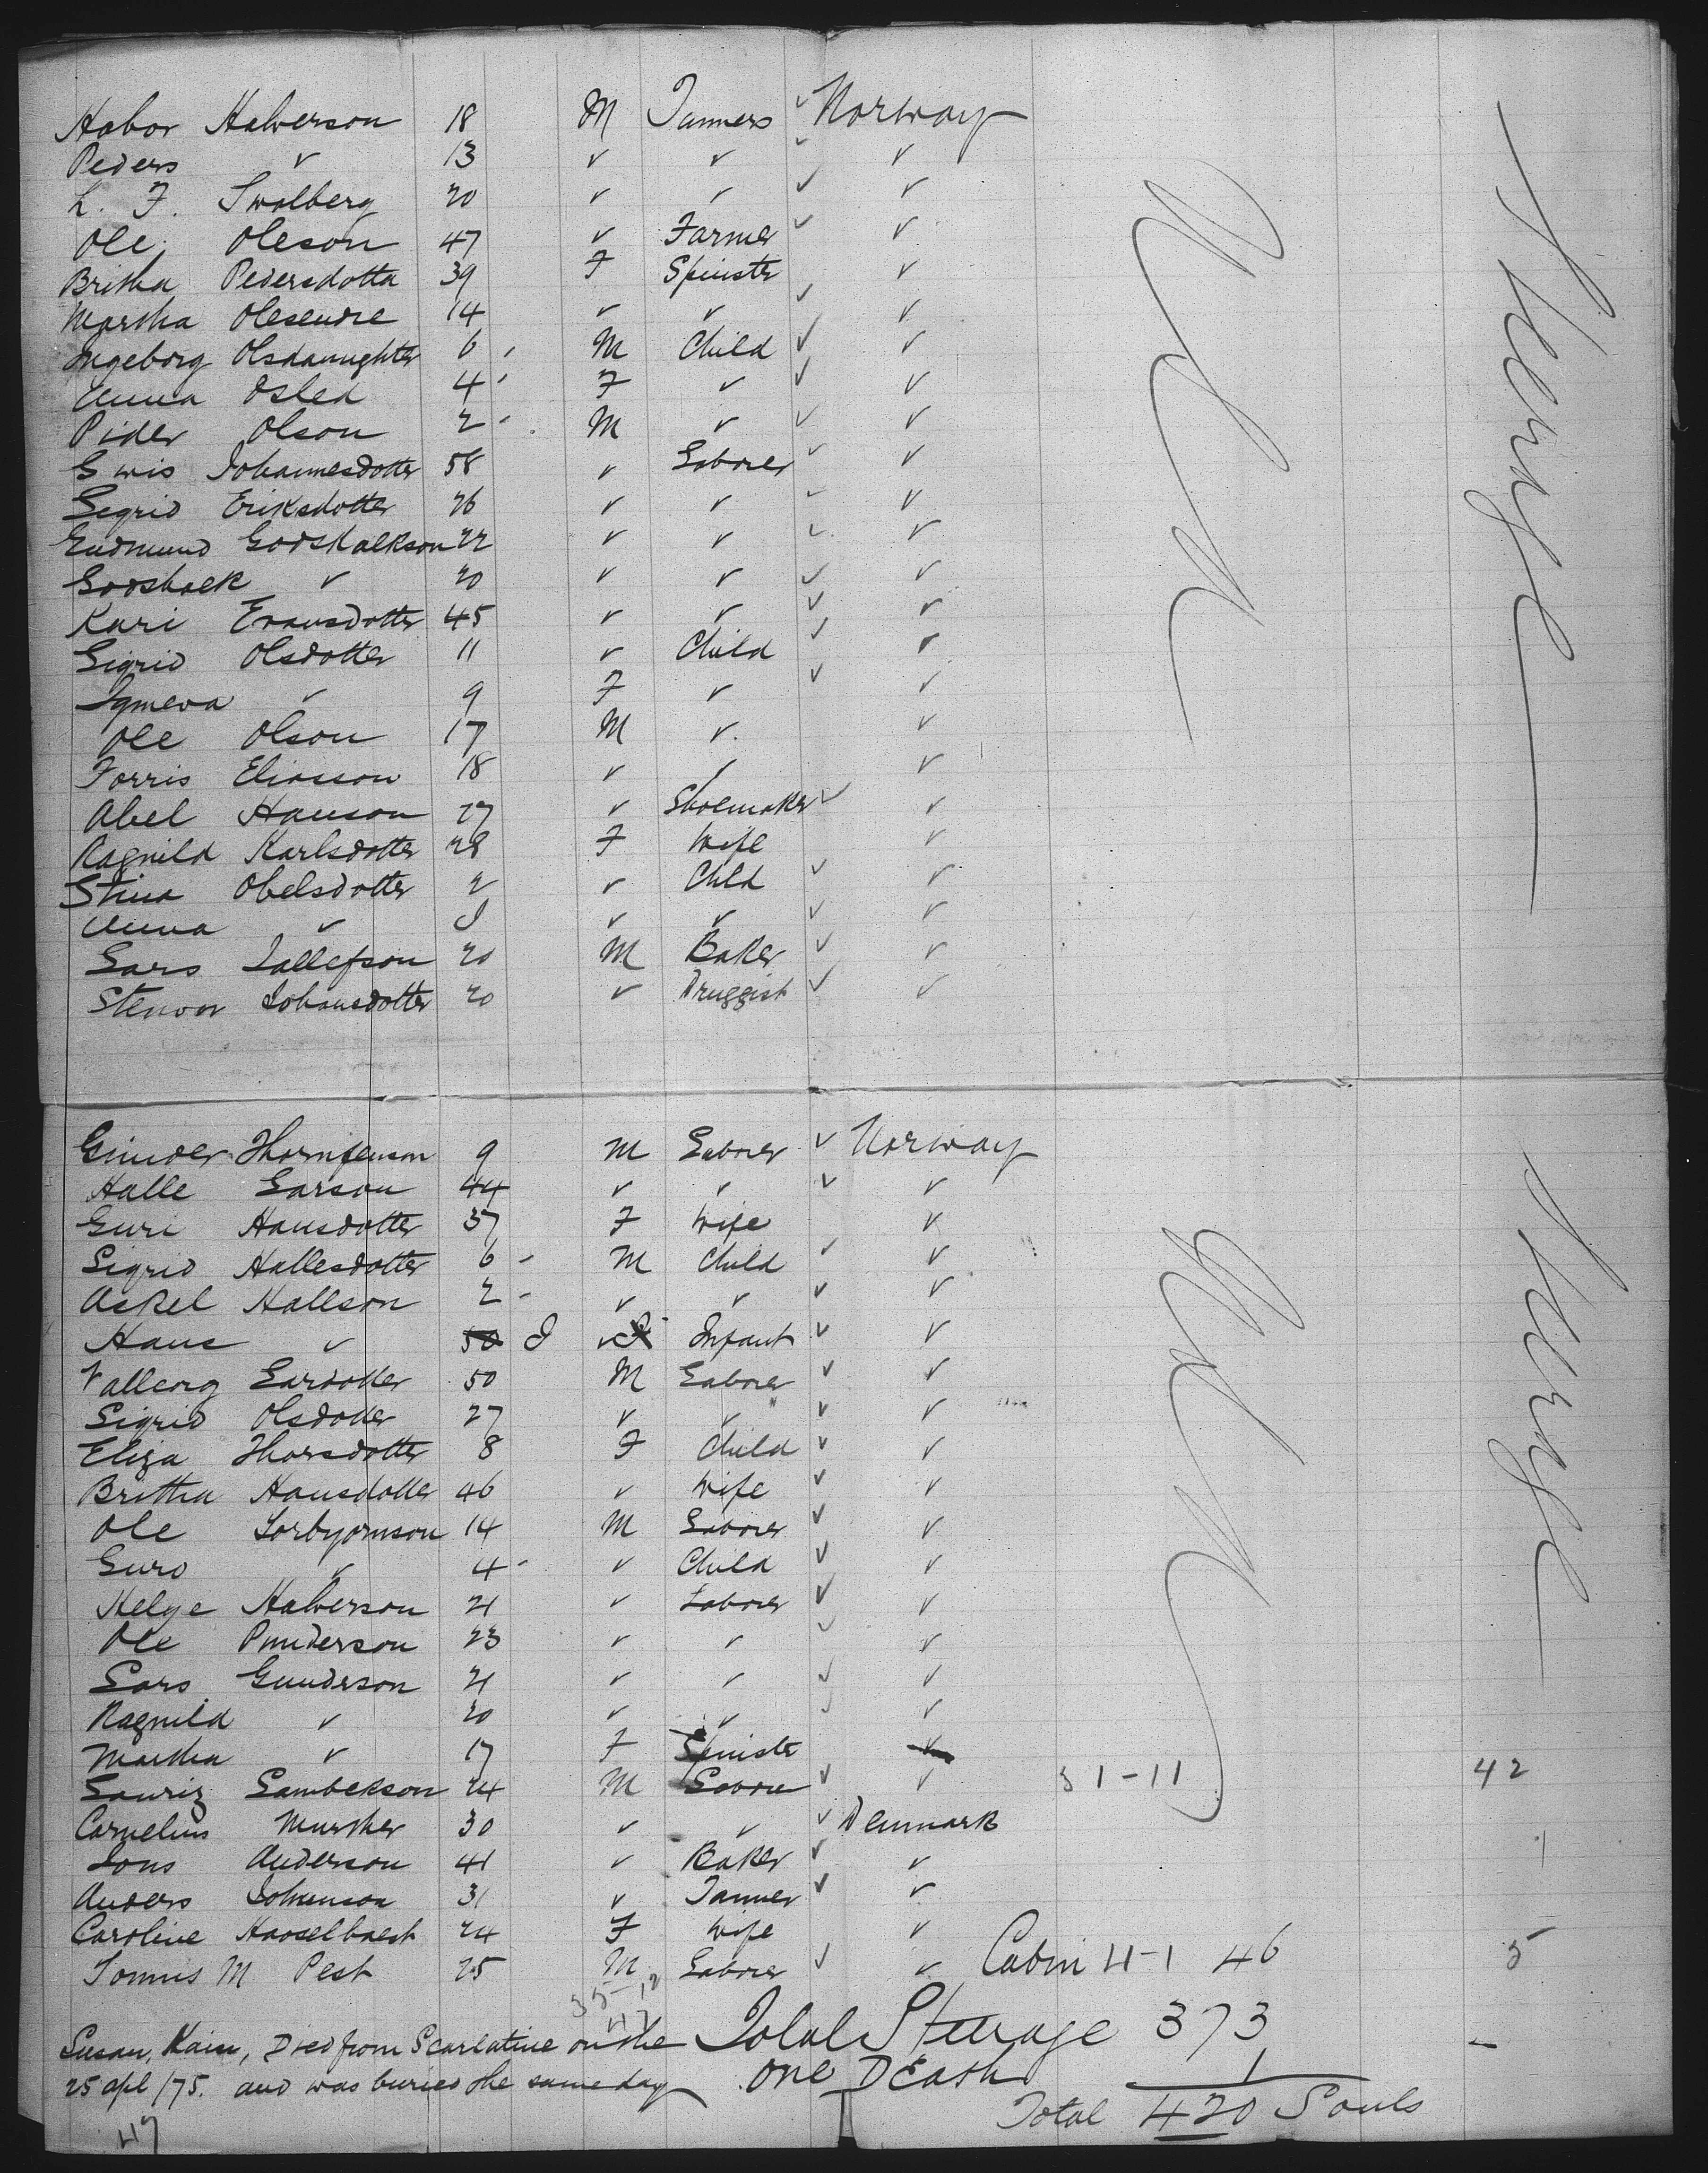 Habor Halverson 18 M Tanners ✓ Norway
Peders ✓ 13 ✓ ✓ ✓ ✓
L. F. Swalberg 20 ✓ ✓ ✓ ✓
Ole Oleson 47 ✓ Farmer ✓ ✓
Britha Pedersdotta 39 F Spinster ✓
Martha Olesendre 14 ✓ ✓ ✓ ✓
Ingeborg Olsdaunghter 6 M Child ✓ ✓
Anna Osled 4 F ✓ ✓ ✓
Pider Olson 2 M ✓ ✓ ✓
Johannesdotter 58 ✓ Laborer ✓ ✓
Sigrid Eriksdotter 26 ✓ ✓ ✓ ✓
Gudmund Godskalkson 22 ✓ ✓ ✓ ✓
Godshalk ✓ 20 ✓ ✓ ✓ ✓
Kari Evansdotter 45 ✓ ✓ ✓ ✓
Sigrid Olsdotter 11 ✓ Child ✓ ✓
Synneva ✓ 9 F ✓ ✓ ✓
Ole Olson 17 M ✓ ✓
Torris Eliasson 18 ✓ ✓ ✓
Abel Hanson 27 ✓ Shoemaker ✓ ✓
Ragnild Karlsdotter 28 F Wife ✓
Stina Obelsdotter 2 ✓ Child ✓ ✓
Anna ✓ I ✓ ✓ ✓ ✓
Lars Tallefson 20 M Baker ✓ ✓
Stenvor Johansdotter 20 ✓ Druggist ✓ ✓
N Y
Steerage
Gunder 9 M Laborer ✓ Norway
Halle Larson 44 ✓ ✓ ✓ ✓
Guri Hansdotter 37 F Wife ✓
Sigrid Hallesdotter 6 M Child ✓ ✓
Askel Hallson 2 ✓ ✓ ✓ ✓
Hans ✓ 50 I ✓ Infant ✓ ✓
Valleorg Lardotter 50 M Laborer ✓ ✓
Sigrid Olsdotter 27 ✓ ✓ ✓ ✓
Eliza Thorsdotter 8 F Child ✓ ✓
Brittha Hansdotter 46 ✓ Wife ✓ ✓
Ole Torbyornson 14 M Laborer ✓ ✓
Guro ✓ 4 ✓ Child ✓ ✓
Helge Halverson 21 ✓ Laborer ✓ ✓
Ole Punderson 23 ✓ ✓ ✓ ✓
Lars Gunderson 21 ✓ ✓ ✓ ✓
Ragnild ✓ 20 ✓ ✓ ✓ ✓
Martha ✓ 17 F Spinster ✓
Lauriz Lambekson 24 M Laborer ✓ ✓ 31-11 42
Cornelius Mursker 30 ✓ ✓ ✓ Denmark
Jons Anderson 41 ✓ Baker ✓ ✓ 1
Anders Johnson 31 ✓ Tanner ✓ ✓
Caroline Hasselbach 24 F Wife ✓
M Pest 25 M Laborer ✓ ✓ Cabin 4-1 46 5
N Y
Steerage
35-12
47
Susan, Kain, Died from Scarlatine on the Total Steerage 373
25 apl /75. and was buried the same day one Death 1
Total 420 Souls
47